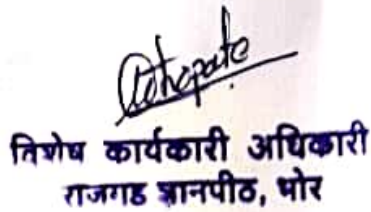 विशेष कार्यकारी अधिकारी
राजगड ज्ञानपीठ, भोर